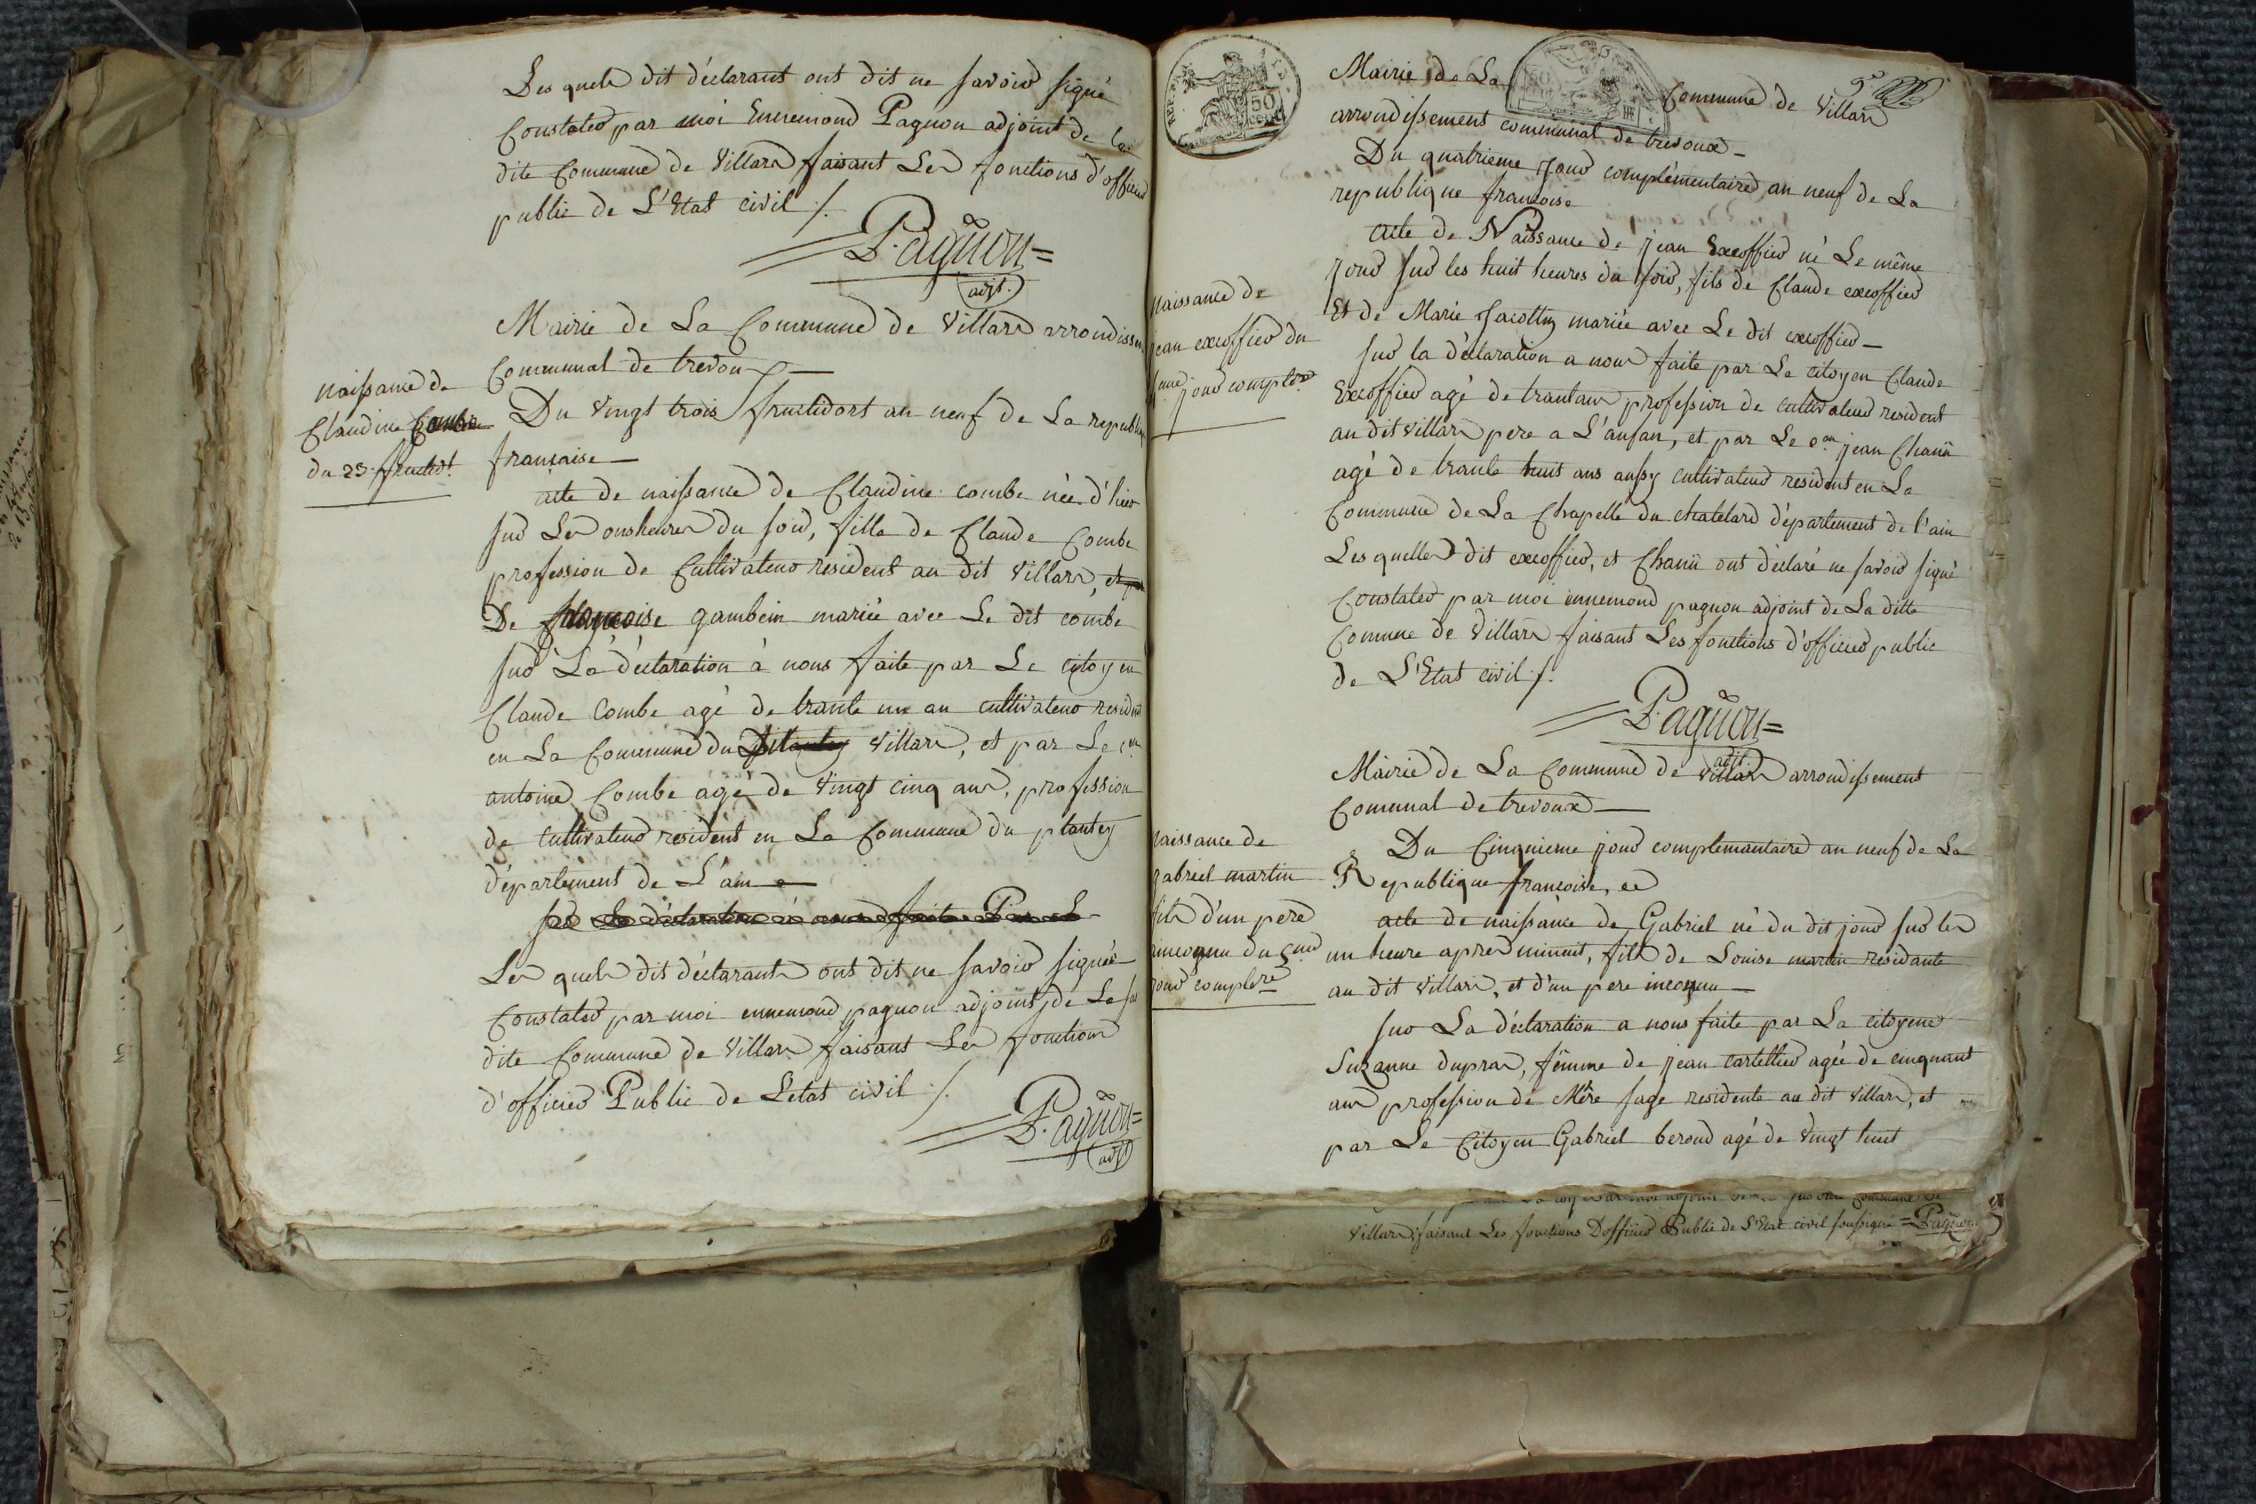 Les quels dit déclarant ont dit ne savoir signé
Constaté par moi Ennemond Pagnon adjoint de la
dite Commune de Villars faisant Les fonctions d'officier
public de L'Etat civil ./.
Pagnon
adjt.
Mairie de La Commune de Villars arrondissem
Communal de trevoux
naissance de
Claudine Combe
du 23 fructidt
Du vingt trois fructidort an neuf de La republi
francaise
acte de naissance de Claudine combe née d'hier
sur Les onsheures du soir, fille de Claude Combe
profession de Cultivateur resident au dit Villars, et par
De francoise gambein mariée avec Le dit combe
sur La déclaration à nous faite par Le citoyen
Claude Combe agé de trante un an cultivateur resident
en La Commune du Villars, et par Le cen
antoine Combe agé de vingt cinq ans, profession
de cultivateur resident en La Commune du plantey
département de L'ain
sur La déclaration à nous faite Par Le
Les quels dit déclarants ont dit ne savoir signée
Constaté par moi ennemond pagnon adjoint de La sus
dite Commune de Villars faisant Les fonctions
d'officier Public de L'etat civil ./.
Pagnon
adjt
REP. FRA.
50
cent.
Mairie de La Commune de Villars
arrondissement communal de trevoux
Du quatrieme jour complémentaire an neuf de La
republique francoise
naissance de
jean excoffier du
4eme jour complre
acte de Naissance de jean Excoffier né Le même
jour sur les huit heures du soir, fils de Claude excoffier
Et de Marie Jacottin mariée avec Le dit excoffier
sur la déclaration a nous faite par Le citoyen Claude
Excoffier agé de trantans profession de cultivateur resident
au dit Villars pere a L'anfan, et par Le cen jean Chanü
agé de trante huit ans aussy cultivateur resident en La
Commune de La Chapelle du chatelard département de l'ain
Les quelles dit excoffier, et Chanü ont déclaré ne savoir signé
Constaté par moi ennemond pagnon adjoint de La ditte
Comune de Villars faisant Les fonctions d'officier public
de L'Etat civil ./.
Pagnon
adjt.
Mairie de La Commune de Villars arrondissement
Comunal de trevoux
naissance de
gabriel martin
fils d'un pere
inconnu du 5me
jour complre
Du Cinquieme jour complemantaire an neuf de La
Republique francoise,
acte de naissance de Gabriel né du dit jour sur les
un heure apres minuit, fils de Louise martin residante
au dit Villars, et d'un pere inconnu
sur La déclaration a nous faite par La citoyene
Suzanne dupras, femme de jean cartellier agée de cinquant
ans profession de Mere sage residente au dit Villars, et
par Le Citoyen Gabriel beroud agé de vingt huit
Villars faisant Les fonctions D'officier Public de L'Etat civil soussigné Pagnon